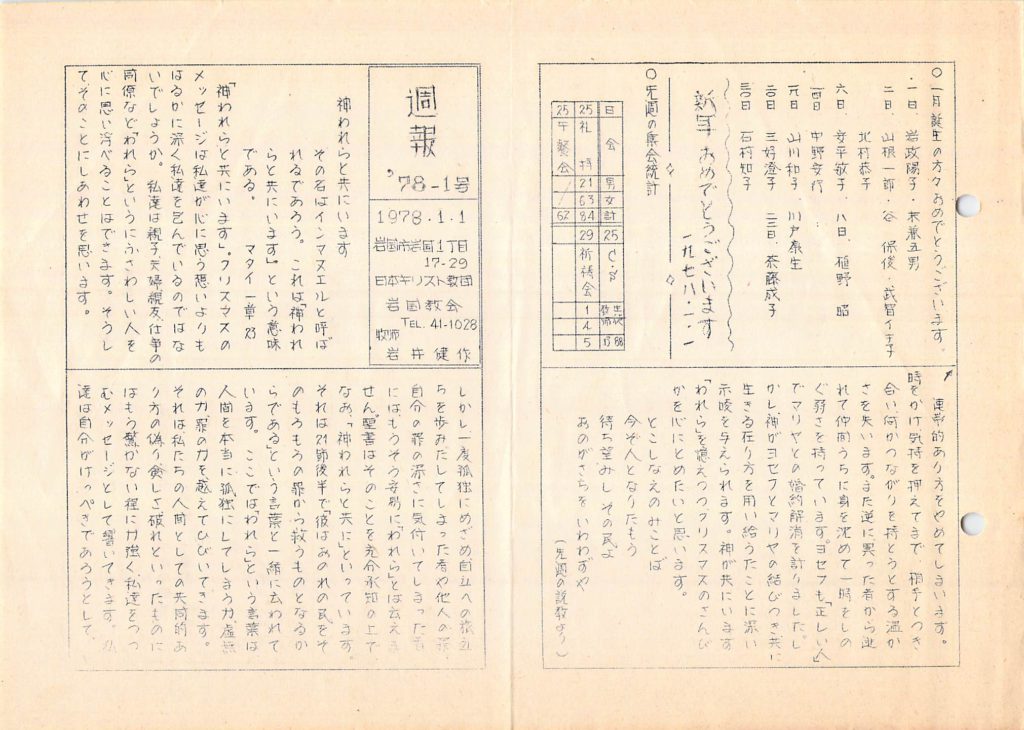 週報
'78-1号
1978.1.1
岩国市岩国1丁目
17-29
日本キリスト教団
岩国教会
TEL. 41-1028
牧師
岩井健作
神われらと共にいます
その名はインマヌエルと呼ば
れるであろう。これは「神われ
らと共にいます」という意味
である。 マタイ一章23
「神われらと共にいます」。クリスマスの
メッセージは私達が心に思う想いよりも
はるかに深く私達を包んでいるのではな
いでしょうか。 私達は親子、夫婦、親友、仕事の
同僚など「われら」というにふさわしい人を
心に思い浮べることはできます。そうし
てそのことにしあわせを思います。
しかし、一度孤独にめざめ、自立への旅立
ちを歩みだしてしまった者や他人の罪、
自分の罪の深さに気付いてしまった者
にはもうそう安易に「われら」とは云えま
せん。聖書はそのことを充分承知の上で
なお、「神われらと共に」といっています。
それは21節後半で「彼はおのれの民をそ
のもろもろの罪から救うものとなるか
らである」という言葉と一緒に云われて
います。 ここでは「われら」という言葉は
人間を本当に孤独にしてしまう力、虚無
の力、罪の力を越えてひびいてきます。
それは私たちの人間としての共同的あ
り方の偽り、貧しさ、破れといったものに
はもう繋がない程に力強く、私達をつつ
むメッセージとして響いてきます。私
達は自分がけっぺきであろうとして、
連帯的あり方をやめてしまいます。
時をかけ気持を押えてまで、相手とつき
合い何かつながりを持とうとする温か
さを失います。また逆に異った者から逃
れて仲間うちに身を沈めて一時をしの
ぐ弱さを持っています。ヨセフも「正しい人」
でマリヤとの婚約解消を計りました。し
かし、神がヨセフとマリヤの結びつき、共に
生きる在り方を用い給うたことに深い
示唆を与えられます。神が共にいます
「われら」を憶えつつクリスマスのさんび
かを心にとめたいと思います。
とこしなえのみことば
今ぞ人となりたもう
待ち望みし その民よ
おのがさちを いわわずや
(先週の説教より)
〇 一月誕生の方々おめでとうございます。
・一日、岩政陽子・末兼五男
二日、山根一郎・谷 保俊・武智イキ子
北村恭子
六日、安平敬子、八日、植野 昭
中野安行
山川和子 川戸康生
三好澄子 三日、斎藤成子
石村知子
新年 おめでとうございます
一九七八・一・一
〇 先週の集会統計
日 会 男 女 計
25 礼拝 21 63 84
25 午餐会 62
25 C・S
29 祈祷会 1 4 5
生徒 88
教師 13